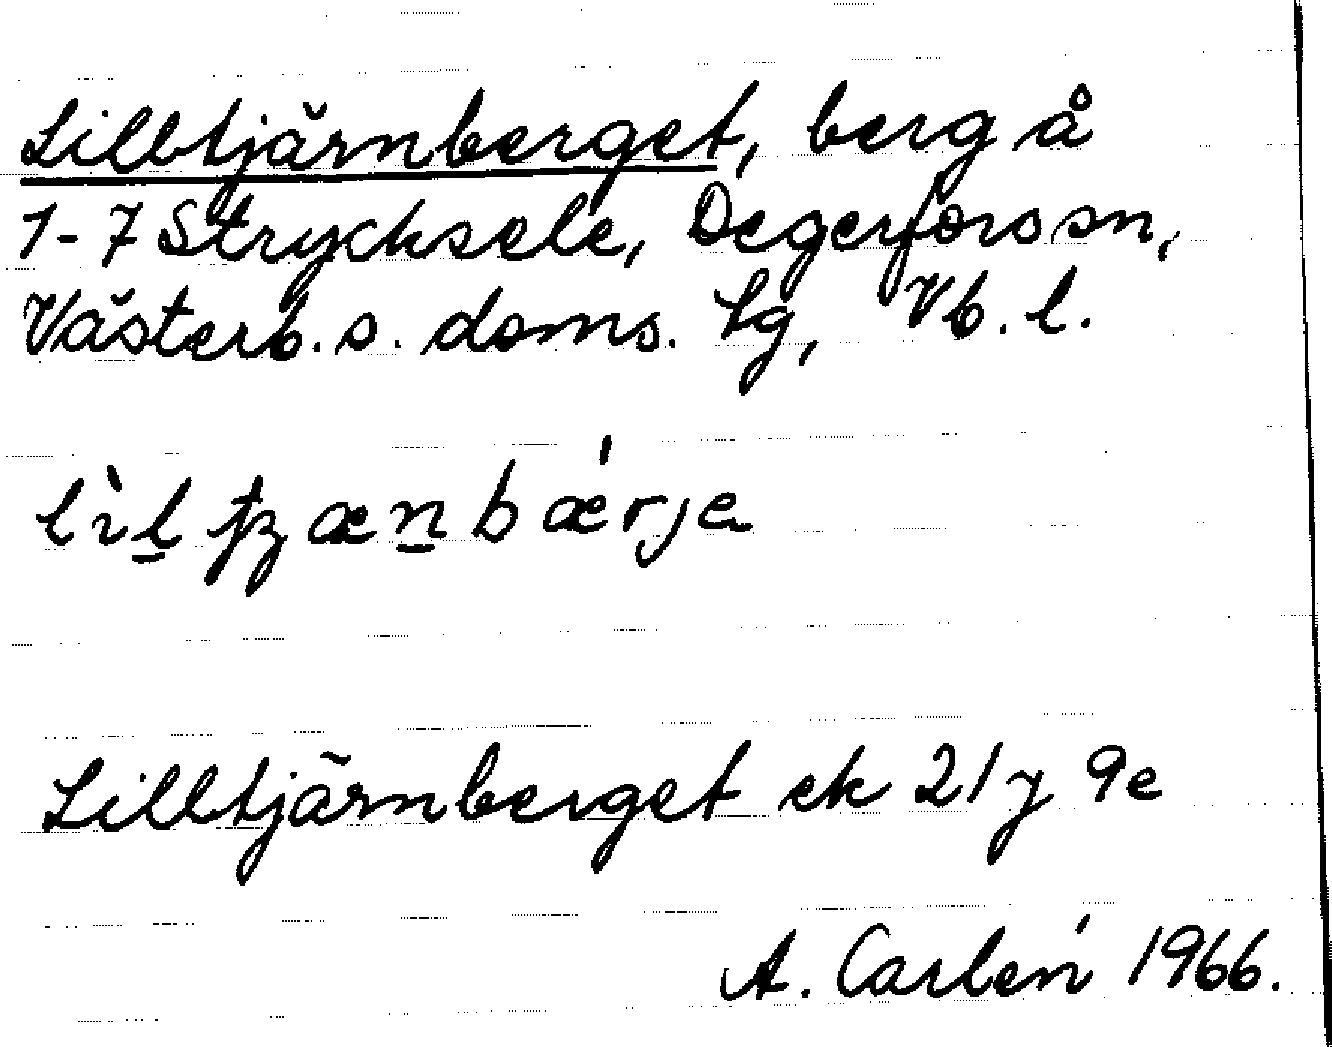 Lilltjärnberget, berg å
1-7 Strycksele, Degerfors sn,
Västerb. s. doms. tg, Vb. l.
lìl̠ ꞇȥæn̠bǽrje
Lilltjärnberget ek 21 J 9e
A. Carlén 1966.